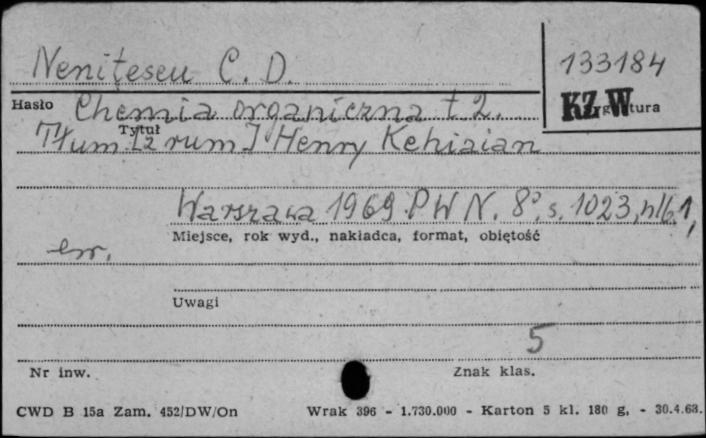 Neniţescu C. D.
133184
Hasło Chemia organiczna t 2.
KZ W
tura
Tytuł
Tłum. [z rum] Henry Kehiaian
Warszawa 1969 PWN. 8°, s. 1023, nlb. 1,
Miejsce, rok wyd., nakładca, format, objętość
Uwagi
5
Nr inw.
Znak klas.
CWD B 15a Zam. 452/DW/On Wrak 396 - 1.730.000 - Karton 5 kl. 180 g. - 30.4.63.